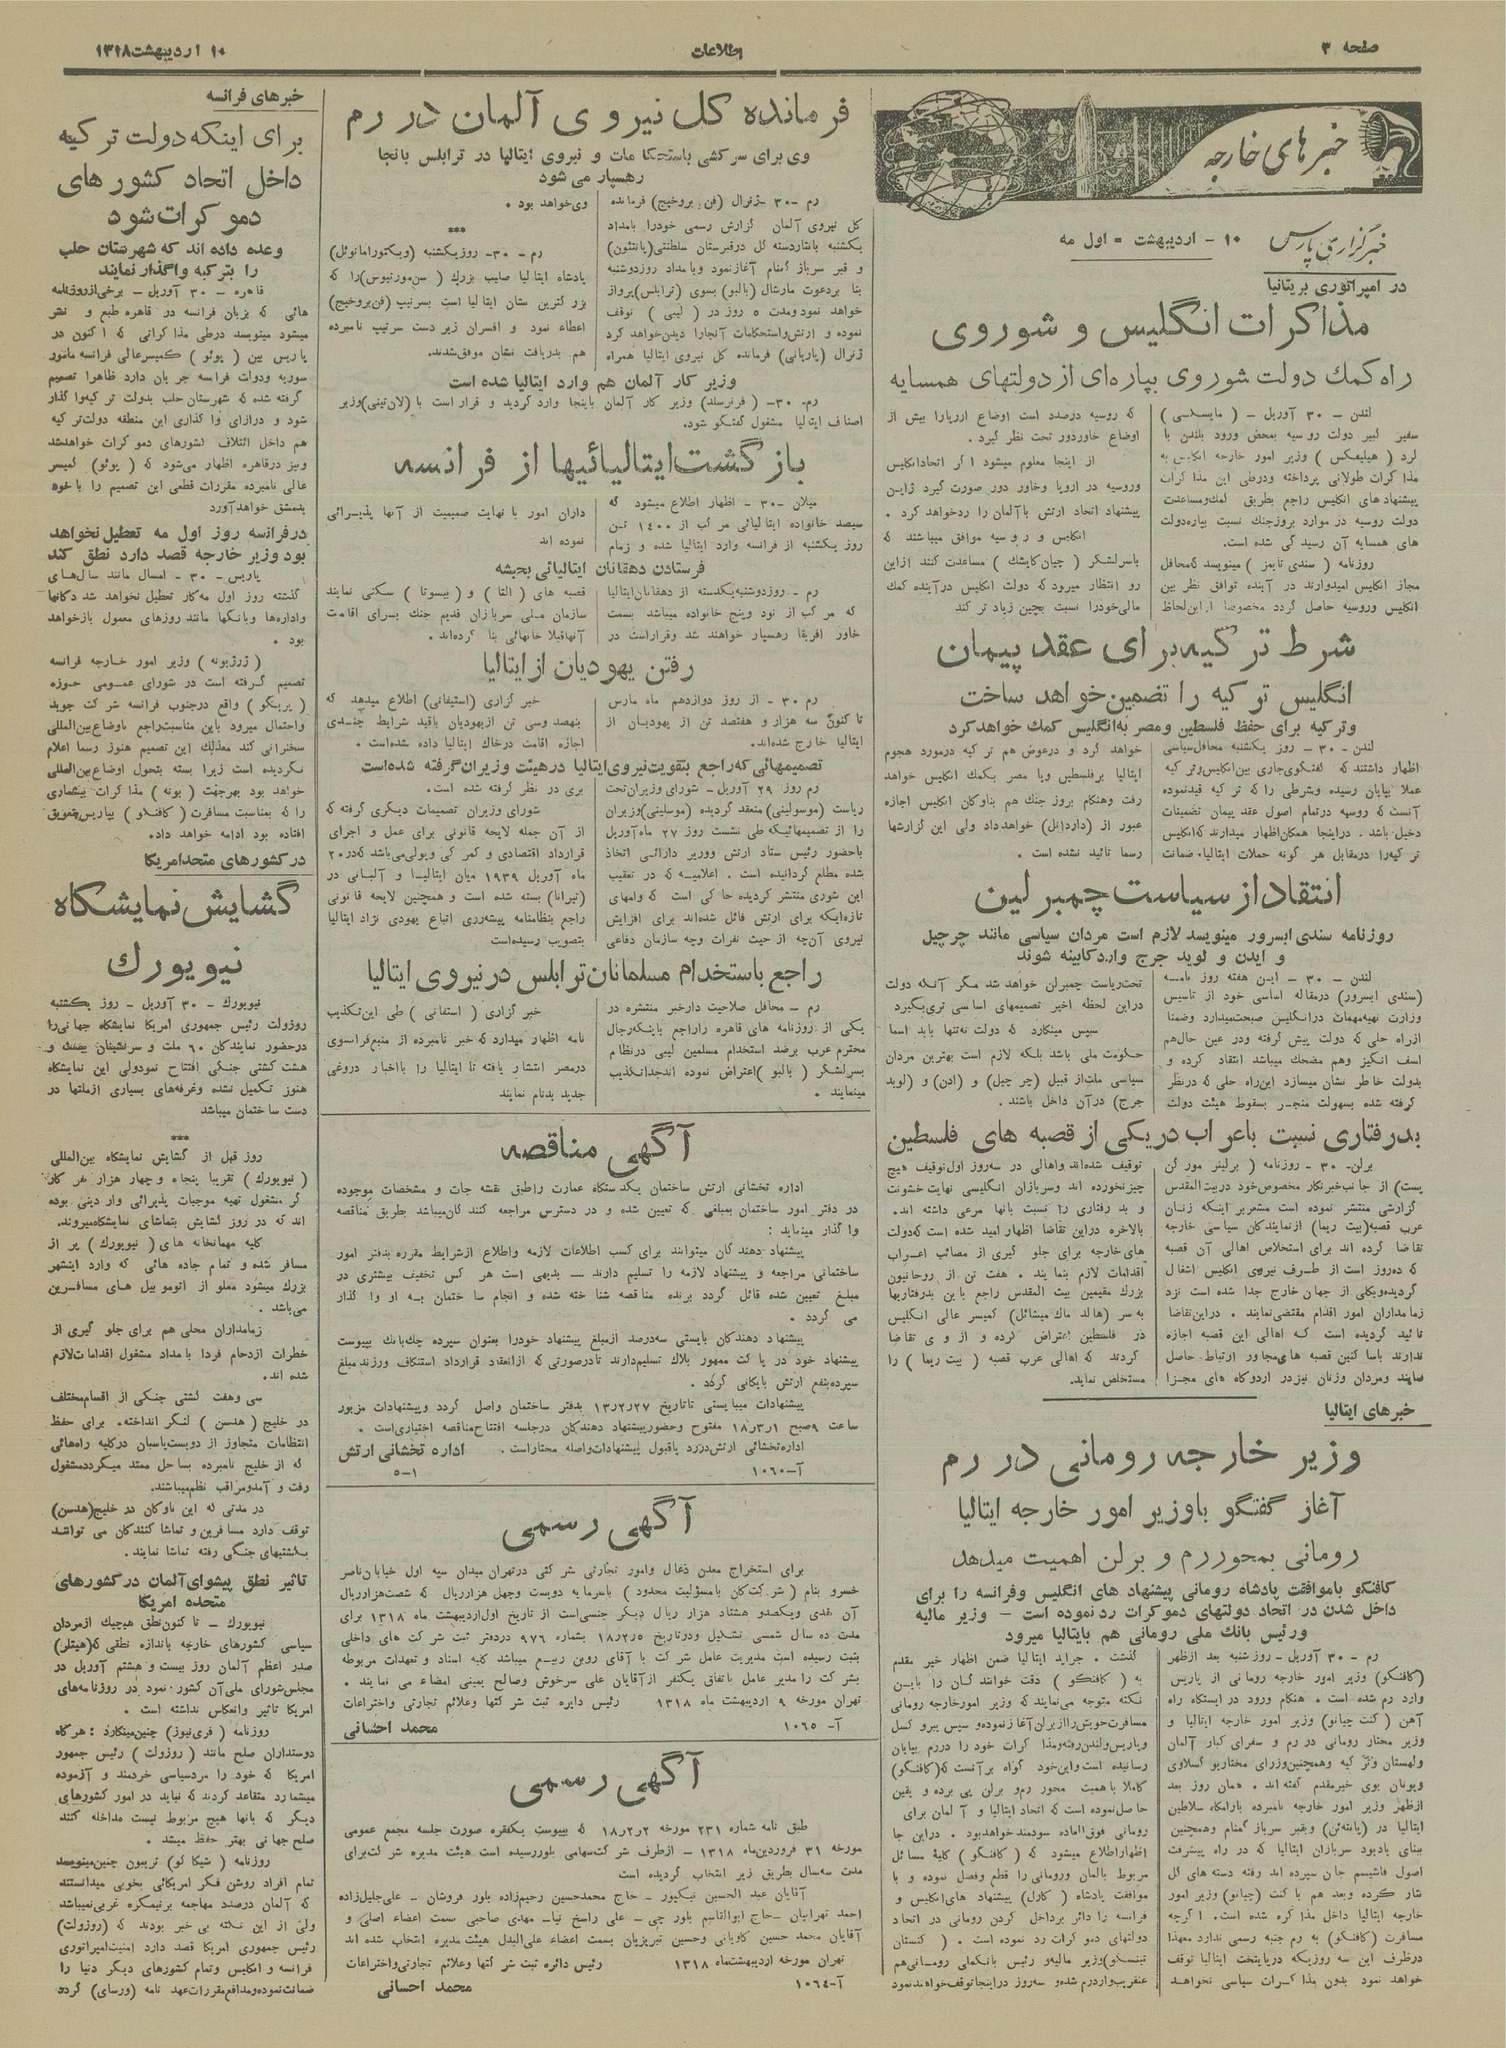 صفحه ۳
اطلاعات
۱۰ اردیبهشت ۱۳۱۸
خبرهای خارجه
خبرگزاری پارس
۱۰ - اردیبهشت = اول مه
در امپراتوری بریتانیا
مذاکرات انگلیس و شوروی
راه کمك دولت شوروی بپاره‌ای از دولتهای همسایه
لندن - ۳۰ آوریل - ( مایسکی )
سفیر کبیر دولت روسیه بمحض ورود بلندن با
لرد ( هیلیفکس ) وزیر امور خارجه انگلیس به
مذاکرات طولانی پرداخته ودرطی این مذاکرات
پیشنهادهای انگلیس راجع بطریق کمك ومساعدت
دولت روسیه در موارد بروزجنك نسبت بپاره‌دولت
های همسایه آن رسیدگی شده است.
روزنامه ( سندی تایمز ) مینویسد که‌محافل
مجاز انگلیس امیدوارند در آینده توافق نظر بین
انگلیس وروسیه حاصل گردد مخصوصا از این‌لحاظ
که روسیه درصدد است اوضاع اروپارا بیش از
اوضاع خاوردور تحت نظر گیرد .
از اینجا معلوم میشود اگر اتحادانگلیس
وروسیه در اروپا وخاور دور صورت گیرد ژاپن
پیشنهاد اتحاد ارتش باآلمان را ردخواهد کرد .
انگلیس و روسیه موافق میباشند که
باسرلشگر ( چیان‌کایشك ) مساعدت کنند ازاین
رو انتظار میرود که دولت انگلیس درآینده کمك
مالی‌خودرا نسبت بچین زیادتر کند
شرط ترکیه برای عقد پیمان
انگلیس ترکیه را تضمین‌خواهد ساخت
وترکیه برای حفظ فلسطین ومصر به‌انگلیس کمك خواهدکرد
لندن - ۳۰ - روز یکشنبه محافل‌سیاسی
اظهار داشتند که گفتگوی‌جاری بین‌انگلیس‌وترکیه
عملا بپایان رسیده وشرطی را که ترکیه قیدنموده
آنست که روسیه درتمام اصول عقد پیمان تضمینات
دخیل باشد . دراینجا همکان‌اظهار میدارند که‌انگلیس
ترکیه‌را درمقابل هر گونه حملات ایتالیا، ضمانت
خواهد کرد و درعوض هم ترکیه درمورد هجوم
ایتالیا برفلسطین ویا مصر بکمك انگلیس خواهد
رفت وهنگام بروز جنك هم بناوگان انگلیس اجازه
عبور از (داردانل) خواهدداد ولی این گزارشها
رسما تائید نشده است .
انتقاد از سیاست چمبرلین
روزنامه سندی ابسرور مینویسد لازم است مردان سیاسی مانند چرچیل
و ایدن و لوید جرج واردکابینه شوند
لندن - ۳۰ - این هفته روز نامه
(سندی ابسرور) درمقاله اساسی خود از تاسیس
وزارت تهیه‌مهمات درانگلیس صحبت‌میدارد وضمنا
ازراه حلی که دولت پیش گرفته ودر عین حال‌هم
اسف انگیز وهم مضحك میباشد انتقاد کرده و
بدولت خاطر نشان میسازد این‌راه حلی که درنظر
گرفته شده بسهولت منجر بسقوط هیئت دولت
تحت‌ریاست چمبرلن خواهد شد مگر آنکه دولت
دراین لحظه اخیر تصمیمهای اساسی تری‌بگیرد
سپس مینگارد که دولت نه‌تنها باید اسما
حکومت ملی باشد بلکه لازم است بهترین مردان
سیاسی ملت‌از قبیل (چرچیل) و (ادن) و (لوید
جرج) درآن داخل باشند .
بدرفتاری نسبت باعراب دریکی از قصبه های فلسطین
برلن- ۳۰ - روزنامه ( برلینر مورگن
پست) از جانب‌خبرنگار مخصوص‌خود دربیت‌المقدس
گزارشی منتشر نموده است مشعربر اینکه زنان
عرب قصبه(بیت ریما) ازنمایندگان سیاسی خارجه
تقاضا کرده اند برای استخلاص اهالی آن قصبه
که ده‌روز است از طرف نیروی انگلیس اشغال
گردیده‌ویکلی از جهان خارج جدا شده است نزد
زمامداران امور اقدام مقتضی‌نمایند . دراین‌تقاضا
تائید گردیده است که اهالی این قصبه اجازه
ندارند باساکنین قصبه های‌مجاور ارتباط حاصل
نمایند ومردان وزنان نیزدر اردوگاه های مجزا
توقیف شده‌اند واهالی در سه‌روز اول‌توقیف هیچ
چیزنخورده اند وسربازان انگلیسی نهایت خشونت
و بد رفتاری را نسبت بانها مرعی داشته اند.
بالاخره دراین تقاضا اظهار امید شده است که‌دولت
های‌خارجه برای جلو گیری از مصائب اعراب
اقدامات لازم بنمایند . هفت تن از روحانیون
بزرك مقیمین بیت المقدس راجع باین بدرفتاریها
به سر (هالد ماك میشائل) کمیسر عالی انگلیس
در فلسطین اعتراض کرده و از وی تقاضا
کردند که اهالی عرب قصبه ( بیت ریما ) را
مستخلص نماید.
خبرهای ایتالیا
وزیر خارجه رومانی در رم
آغاز گفتگو باوزیر امور خارجه ایتالیا
رومانی بمحوررم و برلن اهمیت میدهد
کافنکو باموافقت پادشاه رومانی پیشنهاد های انگلیس وفرانسه را برای
داخل شدن در اتحاد دولتهای دموکرات رد نموده است - وزیر مالیه
ورئیس بانك ملی رومانی هم بایتالیا میرود
رم - ۳۰ آوریل - روز شنبه بعد ازظهر
(کافنکو) وزیر امور خارجه رومانی از پاریس
وارد رم شده است . هنگام ورود در ایستگاه راه
آهن (کنت چیانو) وزیر امور خارجه ایتالیا و
وزیر مختار رومانی در رم و سفرای کبار آلمان
ولهستان وترکیه وهمچنین‌وزرای مختاریوگسلاوی
ویونان بوی خیرمقدم گفته اند . همان روز بعد
ازظهر وزیر امور خارجه نامبرده بارامگاه سلاطین
ایتالیا در (پانته‌ئن) وبقبر سرباز گمنام وهمچنین
بنای یادبود سربازان ایتالیا که در راه پیشرفت
اصول فاشیسم جان سپرده اند رفته دسته های گل
نثار کرده وبعد هم با کنت (چیانو) وزیر امور
خارجه ایتالیا داخل مذاکره شده است. اگرچه
مسافرت (کافنکو) به رم جنبه رسمی ندارد معهذا
درظرف این سه روزیکه درپایتخت ایتالیا توقف
خواهد نمود بدون مذاکرات سیاسی نخواهد
گذشت . جراید ایتالیا ضمن اظهار خیر مقدم
به ( کافنکو ) دقت خوانندگان را باین
نکته متوجه می‌نمایند که وزیر امورخارجه رومانی
مسافرت‌خویش‌راازبرلن آغازنموده‌و سپس ببروکسل
وپاریس‌ولندن‌رفته‌ومذاکرات خود را دررم بپایان
رسانیده است واین‌خود گواه برآنست که(کافنکو)
کاملا باهمیت محور رم‌و برلن پی‌برده و یقین
حاصل‌نموده است که اتحاد ایتالیا و آلمان برای
رومانی فوق‌العاده سودمند خواهدبود . دراین جا
اظهاراطلاع میشود که ( کافنکو ) کلیۀ مسائل
مربوط بالمان ورومانی را قطع وفصل نموده و با
موافقت پادشاه ( کارل) پیشنهاد های‌انگلیس و
فرانسه را دائر برداخل کردن رومانی در اتحاد
دولتهای دموکرات رد نموده است . ( کنستان
تینسکو)وزیر مالیه‌و رئیس بانك‌ملی رومانی‌هم
عنقریب‌واردرم شده‌و سه‌روز دراینجاتوقف‌خواهدنمود
فرمانده کل نیروی آلمان در رم
وی برای سرکشی باستحکامات و نیروی ایتالیا در ترابلس بانجا
رهسپار می شود
رم -۳۰ -ژنرال (فن بروخیج) فرمانده
کل نیروی آلمان گزارش رسمی خودرا بامداد
یکشنبه بانثاردسته گل درقبرستان سلطنتی(پانتئون)
و قبر سرباز گمنام آغازنمود وبامداد روزدوشنبه
بنا بردعوت مارشال (بالبو) بسوی (ترابلس)پرواز
خواهد نمودومدت ۵ روز در ( لیبی ) توقف
نموده و ارتش‌واستحکامات آنجارا دیدن‌خواهد کرد
ژنرال (پاریانی) فرمانده کل نیروی ایتالیا همراه
وی‌خواهد بود .
***
رم - ۳۰- روزیکشنبه (ویکتورامانوئل)
پادشاه ایتالیا صلیب بزرك ( سن‌موریس)را که
بزرگترین نشان ایتالیا است بسرتیپ (فن‌بروخیج)
اعطاء نمود و افسران زیر دست سرتیپ نامبرده
هم بدریافت نشان موفق‌شدند.
وزیر کار آلمان هم وارد ایتالیا شده است
رم- ۳۰- ( فرنزسلد) وزیر کار آلمان باینجا وارد گردید و قرار است با (لان‌تینی)وزیر
اصناف ایتالیا مشغول گفتگو شود.
بازگشت ایتالیائیها از فرانسه
میلان -۳۰ - اظهار اطلاع میشود که
سیصد خانواده ایتالیائی مرکب از ۱۴۰۰ تن
روز یکشنبه از فرانسه وارد ایتالیا شده و زمام
داران امور با نهایت صمیمیت از آنها پذیرائی
نموده اند
فرستادن دهقانان ایتالیائی بحبشه
رم - روزدوشنبه‌یکدسته از دهقانان‌ایتالیا
که مرکب از نود وپنج خانواده میباشد بسمت
خاور افریقا رهسپار خواهند شد وقراراست در
قصبه های ( التا ) و ( بیسوتا ) سکنی نمایند
سازمان ملی سربازان قدیم جنك برای اقامت
آنهاقبلا خانهائی بنا کرده‌اند.
رفتن یهودیان از ایتالیا
رم ۳۰ - از روز دوازدهم ماه مارس
تاکنون سه هزار و هفتصد تن از یهودیان از
ایتالیا خارج شده‌اند.
خبر گزاری (استیفانی) اطلاع میدهد که
بنهصد وسی تن ازیهودیان باقید شرایط چندی
اجازه اقامت درخاك ایتالیا داده شده‌است .
تصمیمهائی که‌راجع بتقویت‌نیروی‌ایتالیا درهیئت وزیران‌گرفته شده‌است
رم روز ۲۹ آوریل - شورای وزیران‌تحت
ریاست (موسولینی) منعقد گردیده (موسلینی)وزیران
را از تصمیمهائیکه طی نشست روز ۲۷ ماه‌آوریل
باحضور رئیس ستاد ارتش ووزیر دارائی اتخاذ
شده مطلع گردانیده است . اعلامیه که در تعقیب
این شوری منتشر گردیده حاکی است که وامهای
تازه‌ایکه برای ارتش قائل شده‌اند برای افزایش
نیروی آن‌چه از حیث نفرات وچه سازمان دفاعی
بری در نظر گرفته شده است.
شورای وزیران تصمیمات دیگری گرفته که
از آن جمله لایحه قانونی برای عمل و اجرای
قرارداد اقتصادی و گمرکی وپولی‌می‌باشد که‌در۲۰
ماه آوریل ۱۹۳۹ میان ایتالیا و آلبانی در
(تیرانا) بسته شده است و همچنین لایحه قانونی
راجع بنظامنامه پیشه‌وری اتباع یهودی نژاد ایتالیا
بتصویب رسیده‌است
راجع باستخدام مسلمانان ترابلس در نیروی ایتالیا
رم - محافل صلاحیت دارخبر منتشره در
یکی از روزنامه های قاهره راراجع باینکه‌رجال
محترم عرب برضد استخدام مسلمین لیبی درنظام
بسرلشگر ( بالبو )اعتراض نموده اندجداتکذیب
مینمایند .
خبر گزاری ( استفانی ) طی این‌تکذیب
نامه اظهار میدارد که خبر نامبرده از منبع‌فرانسوی
درمصر انتشار یافته تا ایتالیا را بااخبار دروغی
جدید بدنام نمایند
آگهی مناقصه
اداره تخشائی ارتش ساختمان یکدستگاه عمارت راطبق نقشه جات و مشخصات موجوده
در دفتر امور ساختمان بمبلغی که تعیین شده و در دسترس مراجعه کنندگان‌میباشد بطریق مناقصه
واگذار مینماید :
پیشنهاد دهندگان میتوانند برای کسب اطلاعات لازمه واطلاع ازشرایط مقرره بدفتر امور
ساختمانی مراجعه و پیشنهاد لازمه را تسلیم دارند - بدیهی است هر کس تخفیف بیشتری در
مبلغ تعیین شده قائل گردد برنده مناقصه شناخته شده و انجام ساختمان به او واگذار
می گردد .
پیشنهاد دهندگان بایستی سه‌درصد ازمبلغ پیشنهاد خودرا بعنوان سپرده چك‌بانك بپیوست
پیشنهاد خود در پاکت ممهور بلاك تسلیم‌دارند تادرصورتی که ازانعقاد قرارداد استنکاف ورزندمبلغ
سپرده‌بنفع ارتش بایگانی گردد.
پیشنهادات میبایستی تاتاریخ ۱۳٫۲٫۲۷ بدفتر ساختمان واصل گردد وپیشنهادات مزبور
ساعت ۹صبح ۱۸٫۳٫۱ مفتوح وحضورپیشنهاد دهندگان درجلسه افتتاح‌مناقصه اختیاری‌است .
اداره‌تخشائی ارتش‌دررد یاقبول پیشنهادات‌واصله مختاراست. اداره تخشائی ارتش
آ-۱۰۶۰ ۱-۵
آگهی رسمی
برای استخراج معدن ذغال وامور تجارتی شرکتی درتهران میدان سپه اول خیابان‌ناصر
خسرو بنام ( شرکت‌کان بامسؤلیت محدود ) باسرمایه دویست وچهل هزارریال که شصت‌هزارریال
آن نقدی ویکصدو هشتاد هزار ریال دیگر جنسی‌است از تاریخ اول‌اردیبهشت ماه ۱۳۱۸ برای
مدت ده سال شمسی تشکیل ودرتاریخ ۱۸٫۲٫۵ بشماره ۹۷۶ دردفتر ثبت شرکت های داخلی
بثبت رسیده است مدیریت عامل شرکت با آقای روبن ربیع میباشد کلیه اسناد و تعهدات مربوطه
بشرکت را مدیر عامل باتفاق یکنفر ازآقایان علی سرخوش وصالح یمینی امضاء می نمایند .
تهران مورخه ۹ اردیبهشت ماه ۱۳۱۸ رئیس دایره ثبت شرکتها وعلائم تجارتی واختراعات
آ- ۱۰۶۵ محمد احتسابی
آگهی رسمی
طبق نامه شماره ۲۳۱ مورخه ۱۸٫۲٫۲ که بپیوست یکفقره صورت جلسه مجمع عمومی
مورخه ۳۱ فروردین‌ماه ۱۳۱۸ - ازطرف شرکت‌سهامی بلوررسیده است هیئت مدیره شرکت‌برای
مدت سه‌سال بطریق زیر انتخاب گردیده است
آقایان عبد الحسین نیکپور - حاج محمدحسین رحیم‌زاده بلور فروشان - علی‌جلیل‌زاده
احمد تهرانیان -حاج ابوالقاسم بلورچی - علی راسخ نیا- مهدی صاحبی سمت اعضاء اصلی و
آقایان محمد حسین کاویانی وحسین تبریزیان بسمت اعضاء علی‌البدل هیئت مدیره انتخاب شده اند
تهران مورخه اردیبهشت‌ماه ۱۳۱۸ رئیس دائره ثبت شرکتها وعلائم تجارتی‌واختراعات
آ-۱۰۶۴ محمد احسانی
خبرهای فرانسه
برای اینکه دولت ترکیه
داخل اتحاد کشورهای
دموکرات شود
وعده داده اند که شهرستان حلب
را بترکیه واگذار نمایند
قاهره - ۳۰ آوریل - برخی‌ازروزنامه
هائی که بزبان فرانسه در قاهره طبع و نشر
میشود مینویسد درطی مذاکراتی که اکنون در
پاریس بین ( پوئو ) کمیسرعالی فرانسه مامور
سوریه ودولت فرانسه جریان دارد ظاهرا تصمیم
گرفته شده که شهرستان حلب بدولت ترکیه‌وا گذار
شود و درازای واگذاری این منطقه دولت‌ترکیه
هم داخل ائتلاف کشورهای دموکرات خواهدشد
ونیز درقاهره اظهار می‌شود که ( پوئو) کمیسر
عالی نامبرده مقررات قطعی این تصمیم را باخود
بدمشق خواهدآورد
درفرانسه روز اول مه تعطیل‌نخواهد
بود وزیر خارجه قصد دارد نطق کند
پاریس - ۳۰ - امسال مانند سال‌های
گذشته روز اول مه‌کار تعطیل نخواهد شد دکانها
واداره‌ها وبانکها مانند روزهای معمول بازخواهد
بود .
( ژرژبونه ) وزیر امور خارجه فرانسه
تصمیم گرفته است در شورای عمومی حوزه
( پریگو ) واقع درجنوب فرانسه شرکت جوید
واحتمال میرود باین مناسبت‌راجع باوضاع‌بین‌المللی
سخنرانی کند معذلك این تصمیم هنوز رسما اعلام
نگردیده است زیرا بسته بتحول اوضاع‌بین‌المللی
خواهد بود بهرجهت ( بونه ) مذاکرات بیشماری
را که بمناسبت مسافرت ( کافنکو ) بپاریس‌بتعویق
افتاده بود ادامه خواهد داد.
در کشورهای متحدامریکا
گشایش نمایشگاه
نیویورك
نیویورك - ۳۰ آوریل - روز یکشنبه
روزولت رئیس جمهوری امریکا نمایشگاه جهانی‌را
درحضور نمایندگان ۶۰ ملت و سرنشینان بیست و
هشت کشتی جنگی افتتاح نمودولی این نمایشگاه
هنوز تکمیل نشده وغرفه‌های بسیاری ازملتها در
دست ساختمان میباشد
***
روز قبل از گشایش نمایشگاه بین‌المللی
( نیویورك ) تقریبا پنجاه و چهار هزار نفر کار
گر مشغول تهیه موجبات پذیرائی واردینی بوده
اند که در روز گشایش بتماشای نمایشگاه‌میروند.
کلیه مهمانخانه های ( نیویورك ) پر از
مسافر شده و تمام جاده هائی که وارد اینشهر
بزرك میشود مملو از اتوموبیل های مسافرین
می‌باشد .
زمامداران محلی هم برای جلو گیری از
خطرات ازدحام فردا بامداد مشغول اقدامات‌لازم
شده اند.
سی وهفت کشتی جنگی از اقسام‌مختلف
در خلیج ( هدسن ) لنگر انداخته. برای حفظ
انتظامات متجاوز از دویست‌پاسبان درکلیه راه‌هائی
که از خلیج نامبرده بساحل ممتد میگرددمشغول
رفت و آمدومراقب نظم‌میباشند.
در مدتی که این ناوگان در خلیج(هدسن)
توقف دارد مسافرین و تماشا کنندگان می توانند
بکشتیهای جنگی رفته تماشا نمایند .
تاثیر نطق پیشوای‌آلمان در کشورهای
متحده امریکا
نیویورك - تاکنون‌نطق هیچیك ازمردان
سیاسی کشورهای خارجه باندازه نطقی که(هیتلر)
صدر اعظم آلمان روز بیست و هشتم آوریل در
مجلس‌شورای ملی‌آن کشور نمود در روزنامه‌های
امریکا تاثیر وانعکاس نداشته است .
روزنامه ( فری‌نیوز) چنین‌مینگارد : هرگاه
دوستداران صلح مانند ( روزولت ) رئیس جمهور
امریکا که خود را مردسیاسی خردمند و آزموده
میشمارد متقاعد گردند که نباید در امور کشورهای
دیگر که بانها هیچ مربوط نیست مداخله کنند
صلح جهانی بهتر حفظ میشد .
روزنامه ( شیکاگو) تریبون چنین‌مینویسد
تمام افراد روشن فکر امریکائی بخوبی میدانستند
که آلمان درصدد مهاجمه برنیمکره غربی‌نمیباشد
ولی از این نکته بی خبر بودند که (روزولت)
رئیس جمهوری امریکا قصد دارد امنیت‌امپراتوری
فرانسه و انگلیس وتمام کشورهای دیگر دنیا را
ضمانت‌نموده‌ومدافع‌مقررات‌عهد نامه (ورسای) گردد